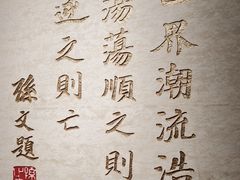 世界潮流浩
浩蕩蕩順之則
逆之則亡
孫文題